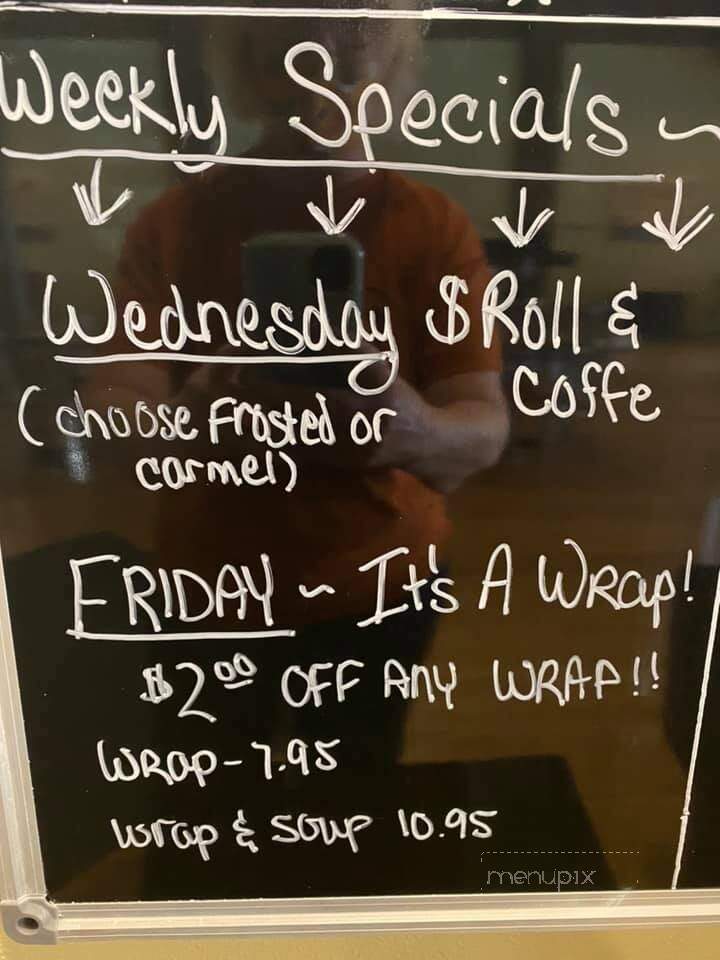 Weekly Specials ~
Wednesday $Roll &
Coffe
(choose Frosted or
carmel)
FRIDAY ~ It's A WRap!
$2.00 OFF ANY WRAP!!
WRap - 7.95
wrap & soup 10.95
menupix